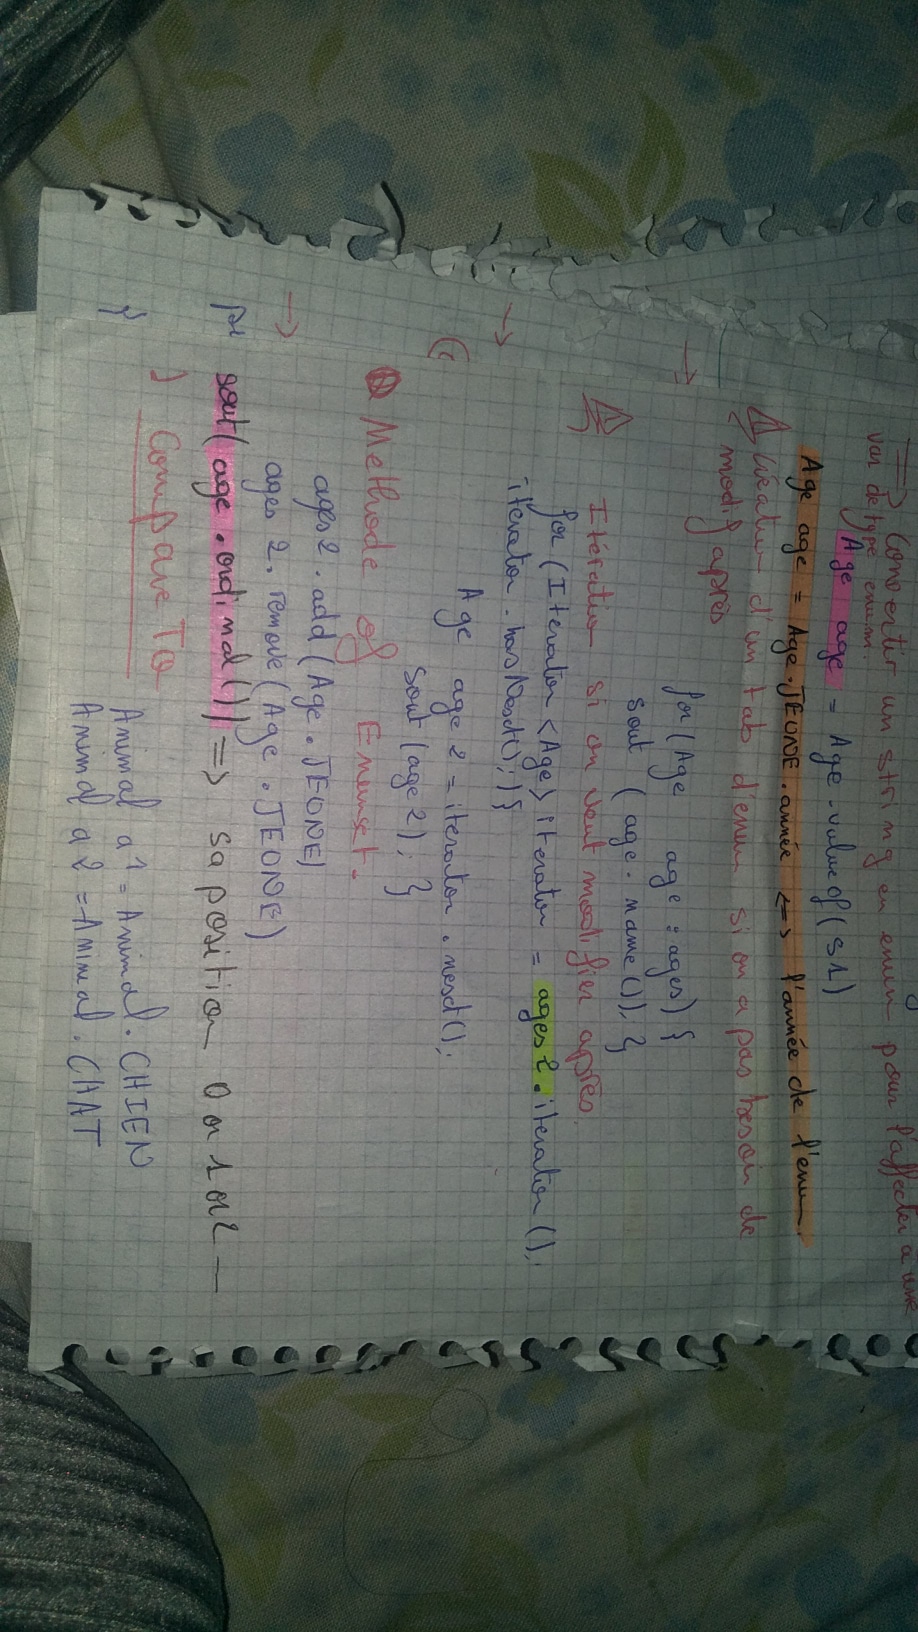 => Convertir un string en enum pour l'affecter à une
var de type enum.
Age age = Age.valueof(s1)
Age age = Age.JEUNE.année <=> l'année de l'enum.
Création d'un tab d'enum si on a pas besoin de
modif après
for (Age age : ages) {
sout (age.name()); }
Itération si on veut modifier après.
for (Iterator <Age> iterator = ages2.iterator();
iterator.hasNext();) {
Age age2 = iterator.next();
sout (age2); }
Methode of Enumset.
ages2.add (Age.JEUNE)
ages2.remove (Age.JEUNE)
sout( age.ordinal()) => sa position 0 ou 1 ou 2 —
Compare To
Animal a1 = Animal.CHIEN
Animal a2 = Animal.CHAT